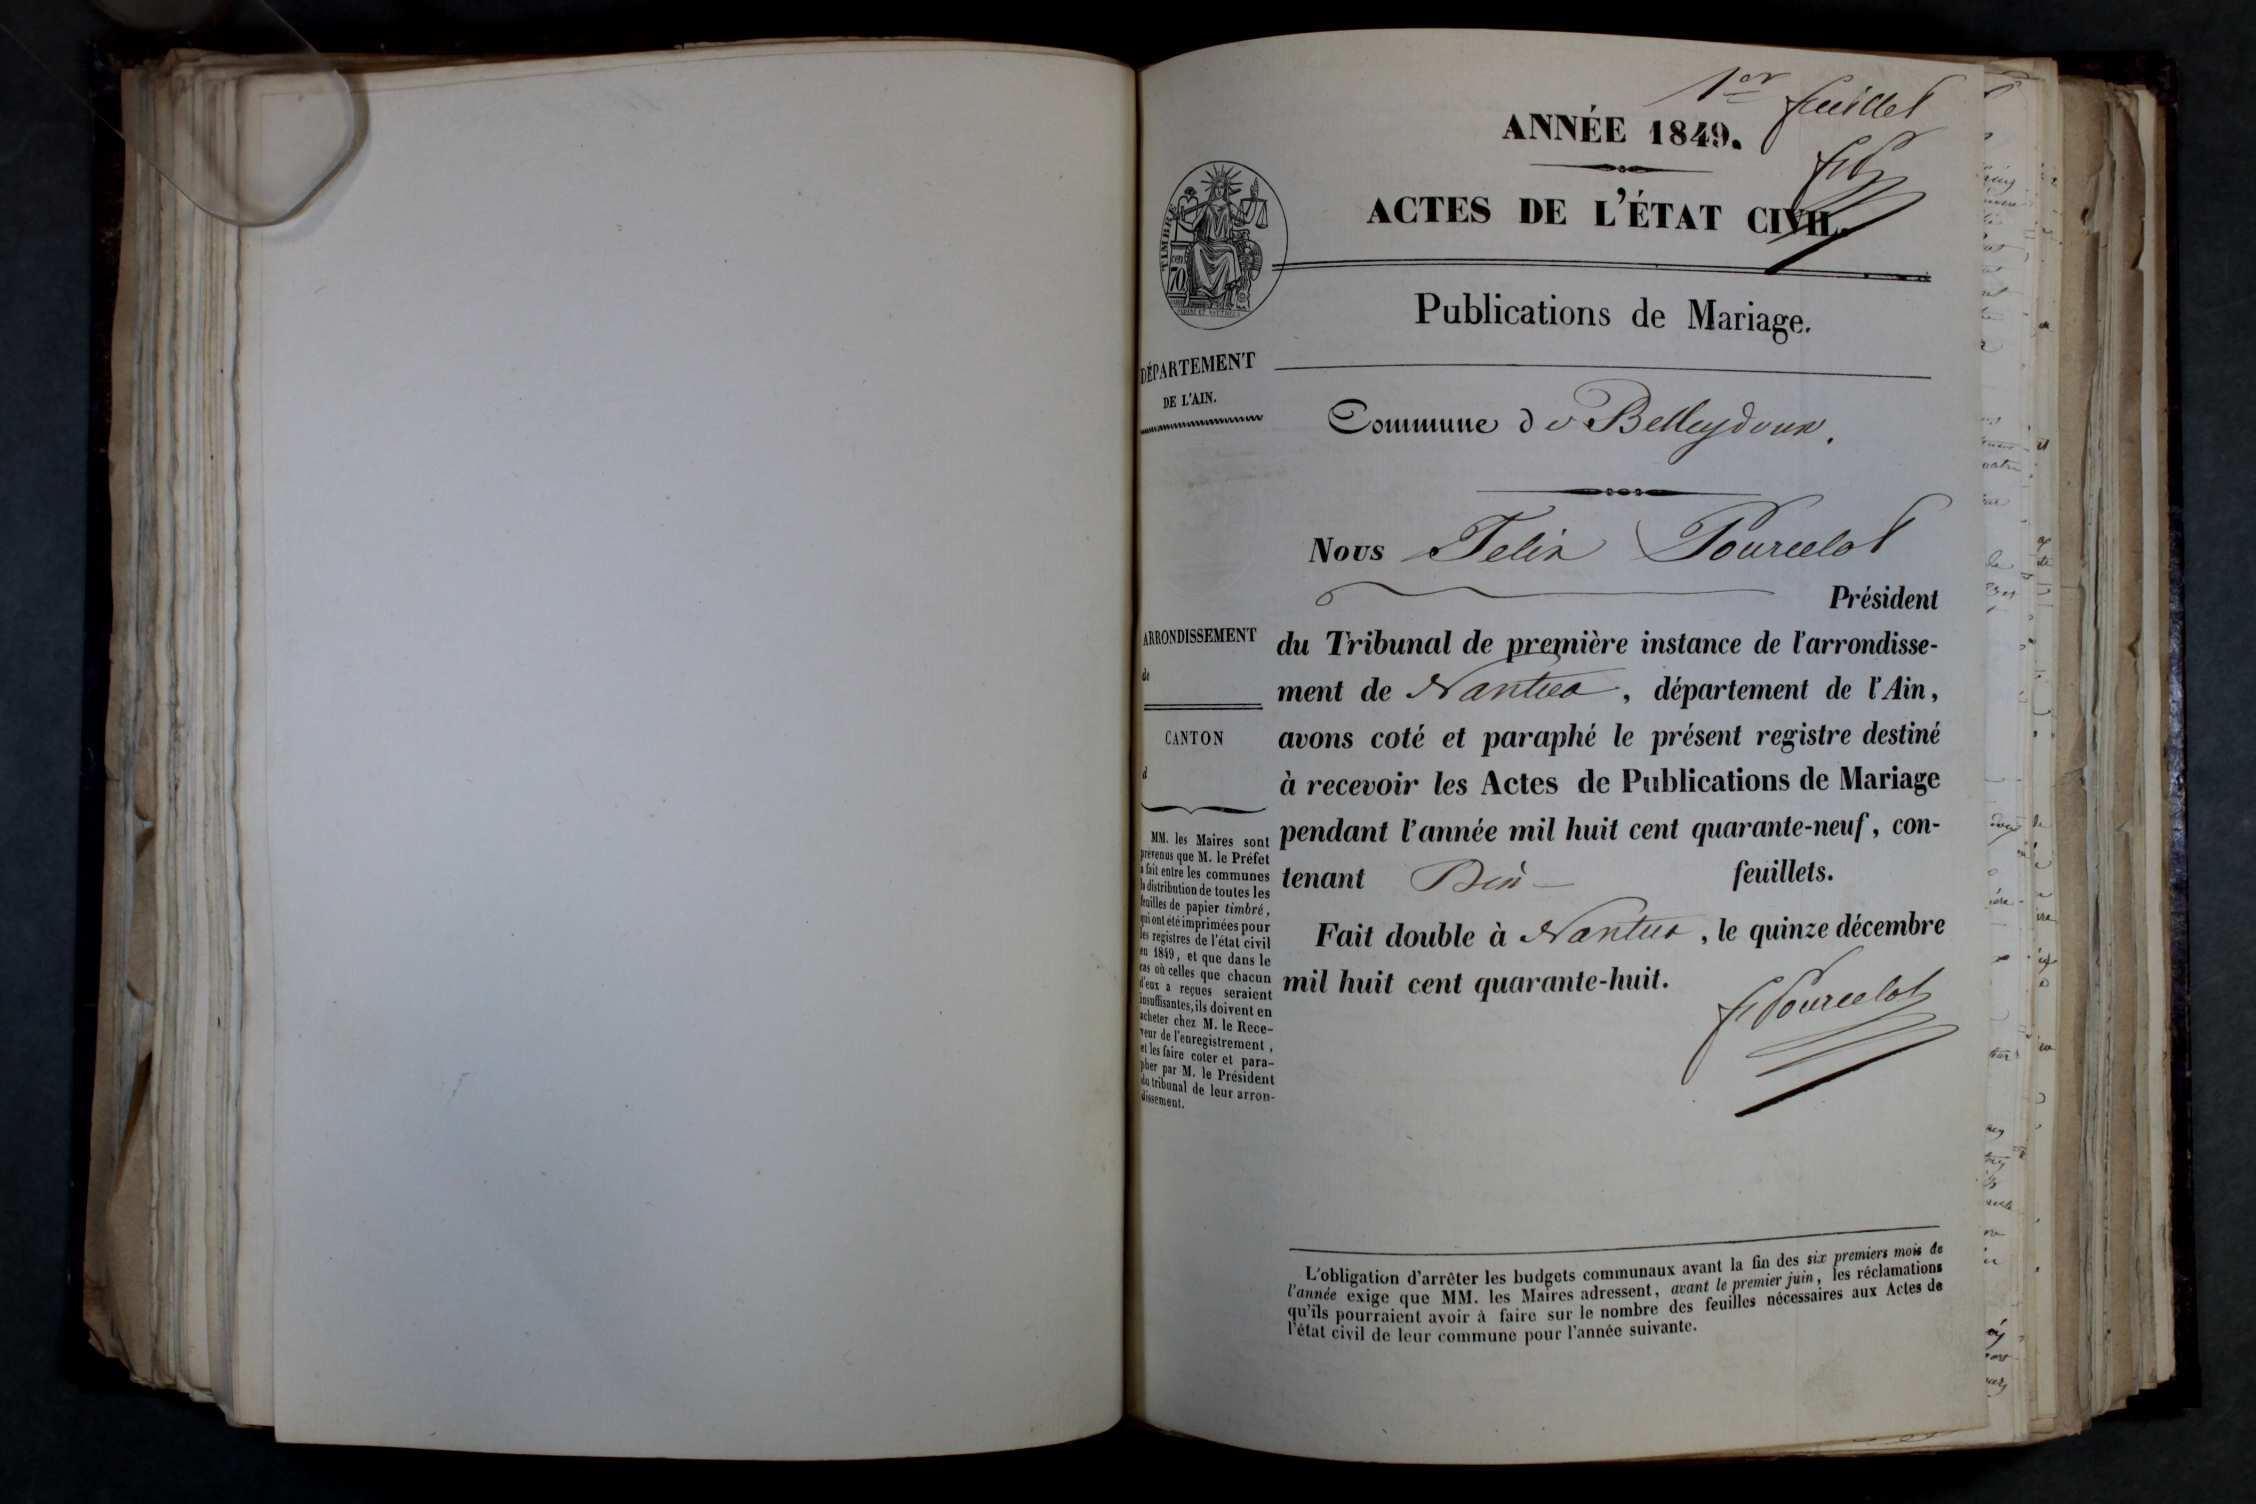 1er feuillet
ANNÉE 1849.
ACTES DE L'ÉTAT CIVIL.
TIMBRE
70
Publications de Mariage.
DÉPARTEMENT
DE L'AIN.
Commune de Belleydoux.
Nous Felix Pourcelot
Président
du Tribunal de première instance de l'arrondisse-
ment de Nantua, département de l'Ain,
avons coté et paraphé le présent registre destiné
à recevoir les Actes de Publications de Mariage
pendant l'année mil huit cent quarante-neuf, con-
tenant feuillets.
Fait double à Nantua, le quinze décembre
mil huit cent quarante-huit.
F Pourcelot
ARRONDISSEMENT
de
CANTON
d
MM. les Maires sont
prévenus que M. le Préfet
a fait entre les communes
la distribution de toutes les
feuilles de papier timbré,
qui ont été imprimées pour
les registres de l'état civil
en 1849, et que dans le
cas où celles que chacun
d'eux a reçues seraient
insuffisantes, ils doivent en
acheter chez M. le Rece-
veur de l'enregistrement,
et les faire coter et para-
pher par M. le Président
du tribunal de leur arron-
dissement.
L'obligation d'arrêter les budgets communaux avant la fin des six premiers mois de
l'année exige que MM. les Maires adressent, avant le premier juin, les réclamations
qu'ils pourraient avoir à faire sur le nombre des feuilles nécessaires aux Actes de
l'état civil de leur commune pour l'année suivante.